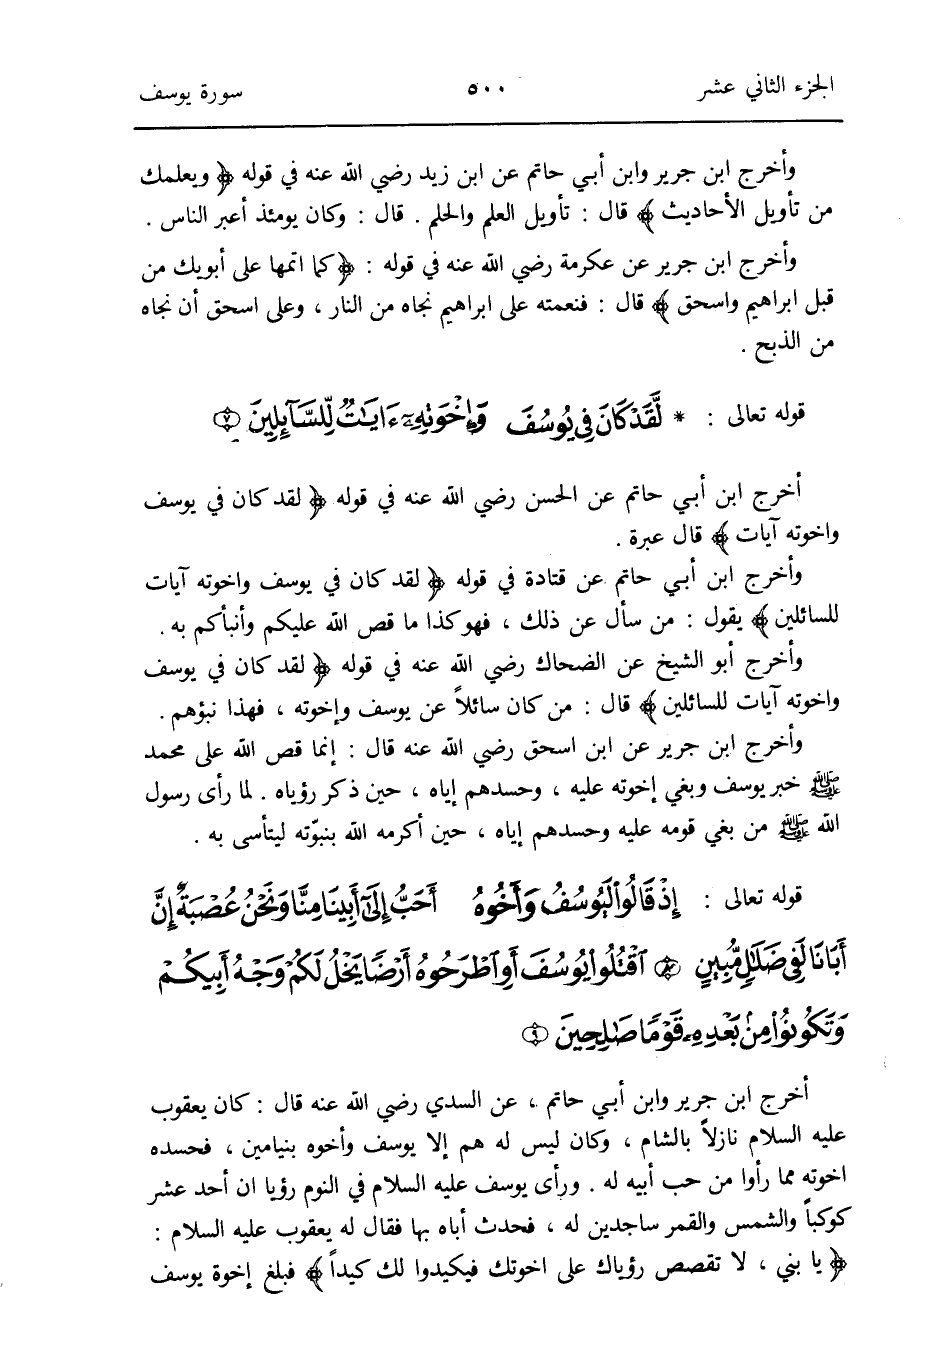 الجزء الثاني عشر ٥٠٠ سورة يوسف
وأخرج ابن جرير وابن أبي حاتم عن ابن زيد رضي الله عنه في قوله ﴿ ويعلمك
من تأويل الأحاديث ﴾ قال : تأويل العلم والحلم . قال : وكان يومئذ أعبر الناس .
وأخرج ابن جرير عن عكرمة رضي الله عنه في قوله : ﴿ كما اتمها على أبويك من
قبل ابراهيم واسحق ﴾ قال : فنعمته على ابراهيم نجاه من النار ، وعلى اسحق أن نجاه
من الذبح .
قوله تعالى : * لَّقَدْ كَانَ فِي يُوسُفَ وَإِخْوَتِهِۦٓ ءَايَٰتٌ لِّلسَّآئِلِينَ ۝٧
أخرج ابن أبي حاتم عن الحسن رضي الله عنه في قوله ﴿ لقد كان في يوسف
واخوته آيات ﴾ قال عبرة .
وأخرج ابن أبي حاتم عن قتادة في قوله ﴿ لقد كان في يوسف واخوته آيات
للسائلين ﴾ يقول : من سأل عن ذلك ، فهو كذا ما قص الله عليكم وأنبأكم به .
وأخرج أبو الشيخ عن الضحاك رضي الله عنه في قوله ﴿ لقد كان في يوسف
واخوته آيات للسائلين ﴾ قال : من كان سائلاً عن يوسف وإخوته ، فهذا نبؤهم .
وأخرج ابن جرير عن ابن اسحق رضي الله عنه قال : إنما قص الله على محمد
ﷺ خبر يوسف وبغي إخوته عليه ، وحسدهم إياه ، حين ذكر رؤياه . لما رأى رسول
الله ﷺ من بغي قومه عليه وحسدهم إياه ، حين أكرمه الله بنبوّته ليتأسى به .
قوله تعالى : إِذْ قَالُوا۟ لَيُوسُفُ وَأَخُوهُ أَحَبُّ إِلَىٰٓ أَبِينَا مِنَّا وَنَحْنُ عُصْبَةٌ إِنَّ
أَبَانَا لَفِي ضَلَٰلٍ مُّبِينٍ ۝٨ ٱقْتُلُوا۟ يُوسُفَ أَوِ ٱطْرَحُوهُ أَرْضًا يَخْلُ لَكُمْ وَجْهُ أَبِيكُمْ
وَتَكُونُوا۟ مِنۢ بَعْدِهِۦ قَوْمًا صَٰلِحِينَ ۝٩
أخرج ابن جرير وابن أبي حاتم ، عن السدي رضي الله عنه قال : كان يعقوب
عليه السلام نازلاً بالشام ، وكان ليس له هم إلا يوسف وأخوه بنيامين ، فحسده
اخوته مما رأوا من حب أبيه له . ورأى يوسف عليه السلام في النوم رؤيا ان أحد عشر
كوكباً والشمس والقمر ساجدين له ، فحدث أباه بها فقال له يعقوب عليه السلام :
﴿ يا بني ، لا تقصص رؤياك على اخوتك فيكيدوا لك كيداً ﴾ فبلغ إخوة يوسف